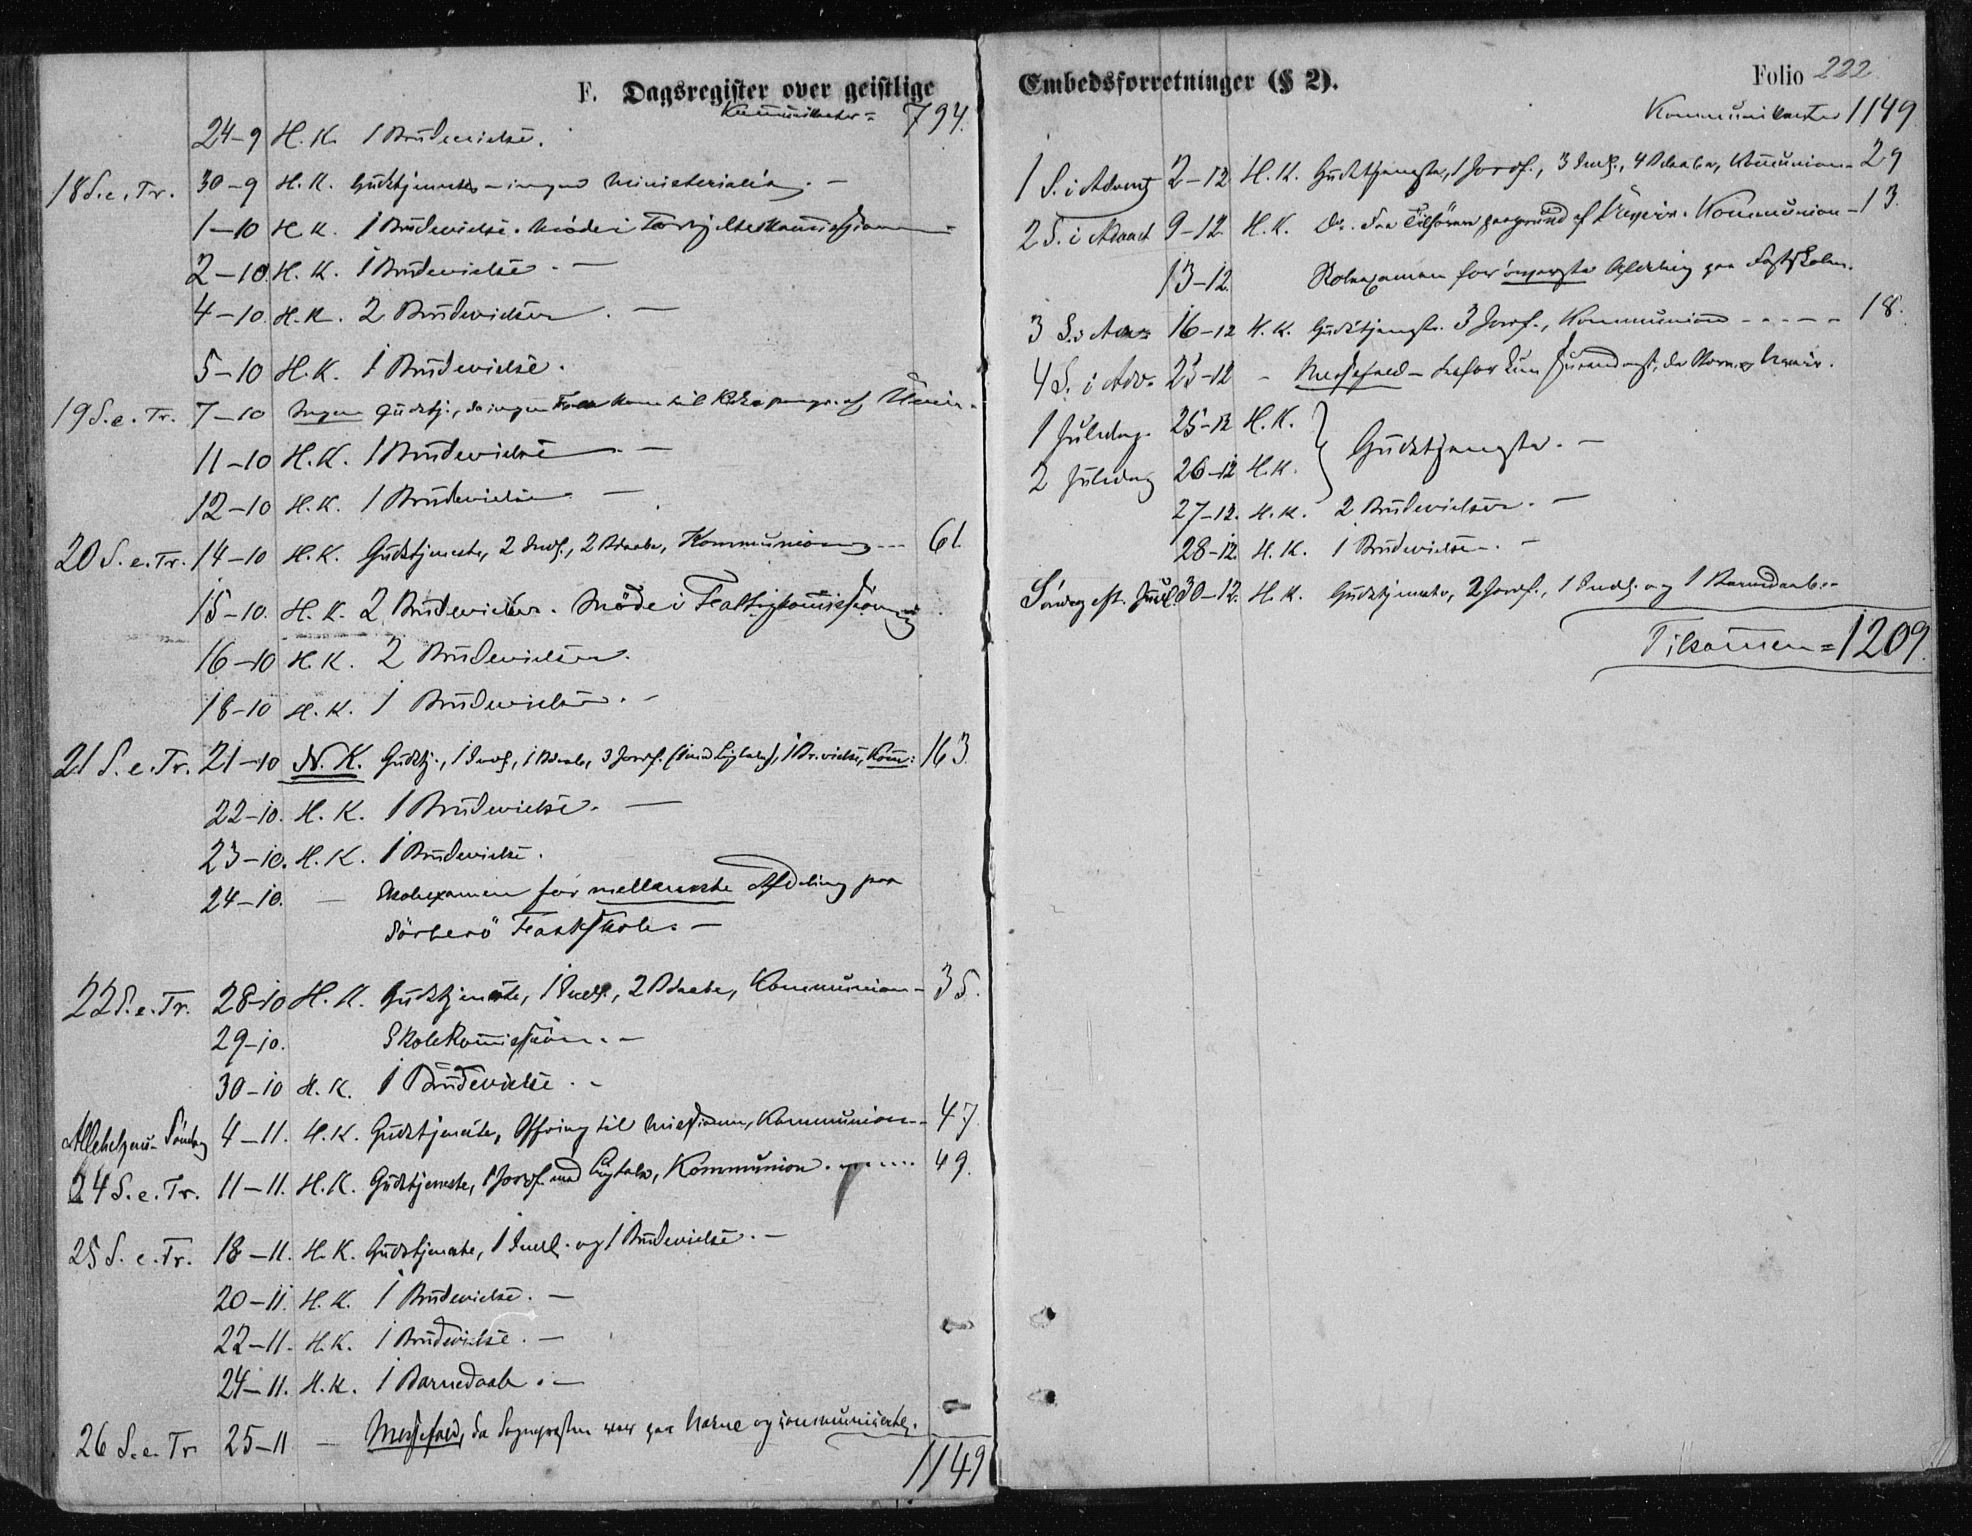 F. Dagsregister over geistlige
Kommunikanter = 794.
24-9 H. K. 1 Brudevielse.
18 S. e. Tr. 30-9 H. K. Gudstjeneste - ingen Ministerialia. -
1-10 H. K. 1 Brudevielse. Møde i
2-10. H. K. 1 Brudevielse. -
4-10. H. K. 2 Brudevielser. -
5-10 H. K. 1 Brudevielse.
19 S. e. Tr. 7-10 Ingen Gudstj., da ingen Folk kom til Kirke pangr. af Uveir.
11-10 H. K. 1 Brudevielse -
12-10 H. K. 1 Brudevielse -
20 S. e. Tr. 14-10 H. K. Gudstjeneste, 2 Indl., 2 Bdaabe, Kommunion --- 61
15-10. H. K. 2 Brudevielser. Møde i Fattigkomissionen
16-10 H. K. 2 Brudevielser.
18-10 H. K. 1 Brudevielse. -
21 S. e. Tr. 21-10 N. K. Gudstj., 1 Indl., 1 Bdaab, 3 Jordf. (1 med Ligtale), 1 Br.vielse, Kom: 163.
22-10. H. K. 1 Brudevielse. -
23-10. H. K. 1 Brudevielse.
24-10. - Skolexamen for mellemste Afdeling paa
Sörberö Fastskole. -
22 S. e. Tr. 28-10 H. K. Gudstjeneste, 1 Indl., 2 Bdaabe, Kommunion - 35.
29-10. Skolekomission. -
30-10 H. K. 1 Brudevielse. -
Allehelgens Søndag 4-11. H. K. Gudstjeneste, Offring til Missionen, Kommunion - 47
24 S. e. Tr. 11-11. H. K. Gudstjeneste, 1 Jordf. med Ligtale, Kommunion. ...... 49.
25 S. e. Tr. 18-11. H. K. Gudstjeneste, 1 Indl. og 1 Brudevielse. -
20-11. H. K. 1 Brudevielse. -
22-11. H. K. 1 Brudevielse. -
24-11. H. K. 1 Barnedaab. -
26 S. e. Tr 25-11 - Messefald, da Sognepresten var paa Næsne og kommunicerte.
1149
Embedsforretninger (§ 2).
Folio 222
Kommunikanter 1149
1 S. i Advent 2-12 H. K. Gudstjeneste, 1 Jordf., 3 Indl., 4 Bdaabe, Kommunion - 29
2 S. i Advent 9-12. H. K. Do. Faa Tilhørere paagrund af Uveir. Kommunion - 13.
13-12. Skolexamen for øverste Afdeling paa Fastskolen.
3 S. i Adv. 16-12 H. K. Gudstjeneste. 3 Jordf., Kommunion - - - - - 18.
4 S. i Adv. 23-12 - Messefald -
1 Juledag. 25-12 H. K.
2 Juledag 26-12 H. K. } Gudstjeneste. -
27-12. H. K. 2 Brudevielser. -
28-12. H. K. 1 Brudevielse. -
Søndag eft. Juul. 30-12. H. K. Gudstjeneste, 2 Jordf., 1 Indl. og 1 Barnedaab. -
Tilsammen = 1209.